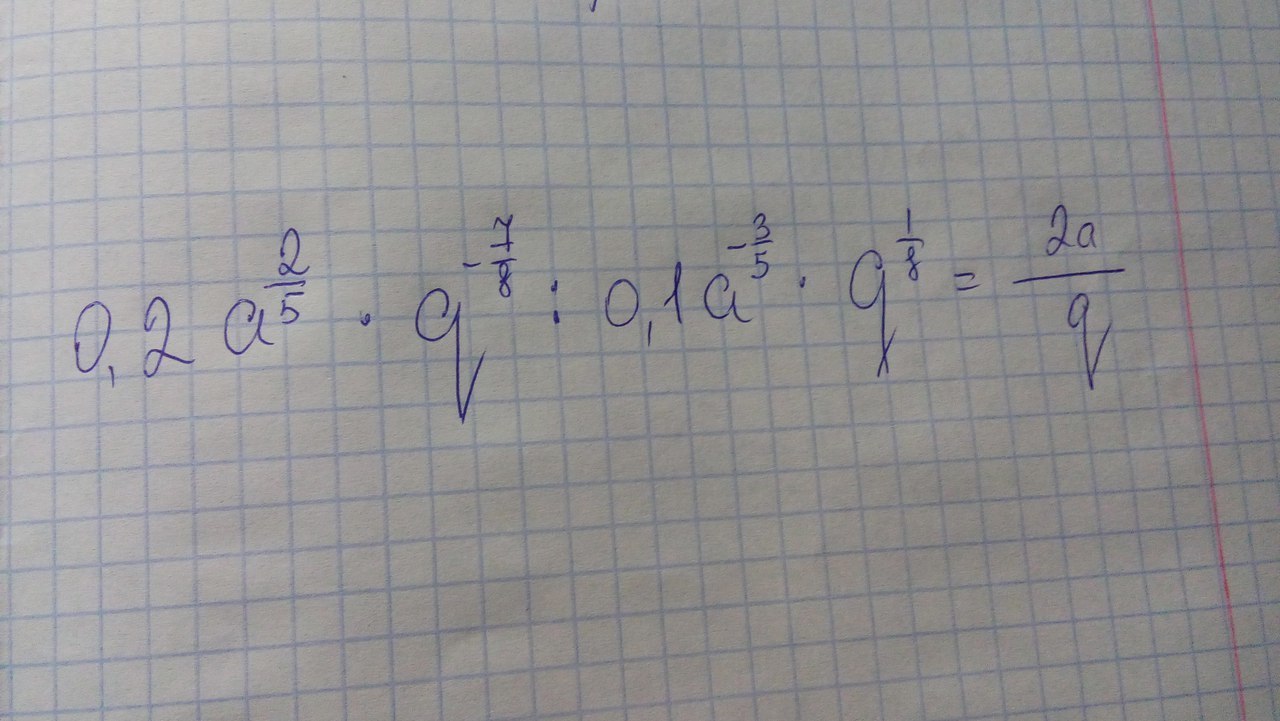 0,2 a^{\frac{2}{5}} · q^{-\frac{7}{8}} : 0,1 a^{-\frac{3}{5}} · q^{\frac{1}{8}} = \frac{2a}{q}